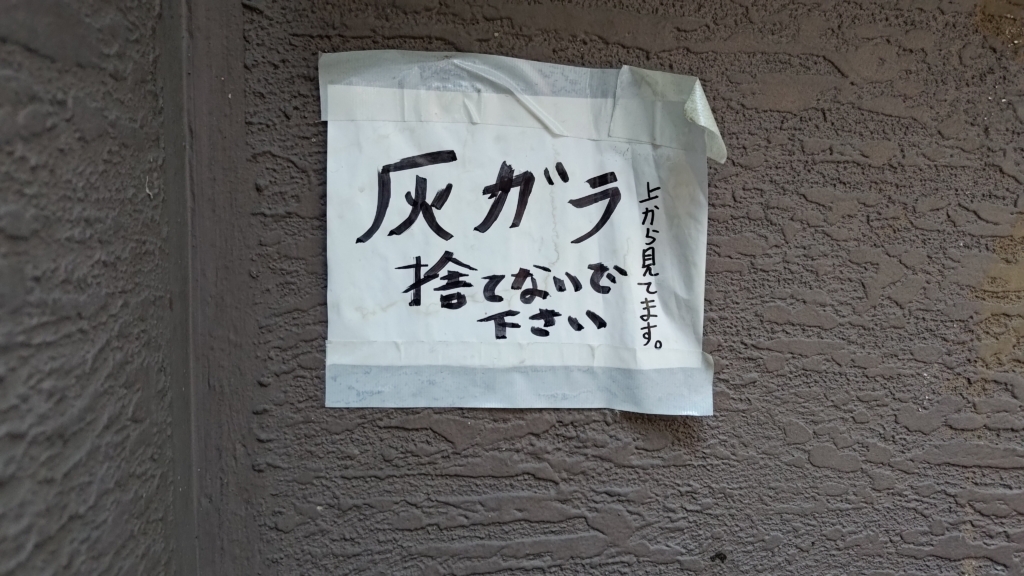 灰ガラ
捨てないで
下さい
上から見てます。